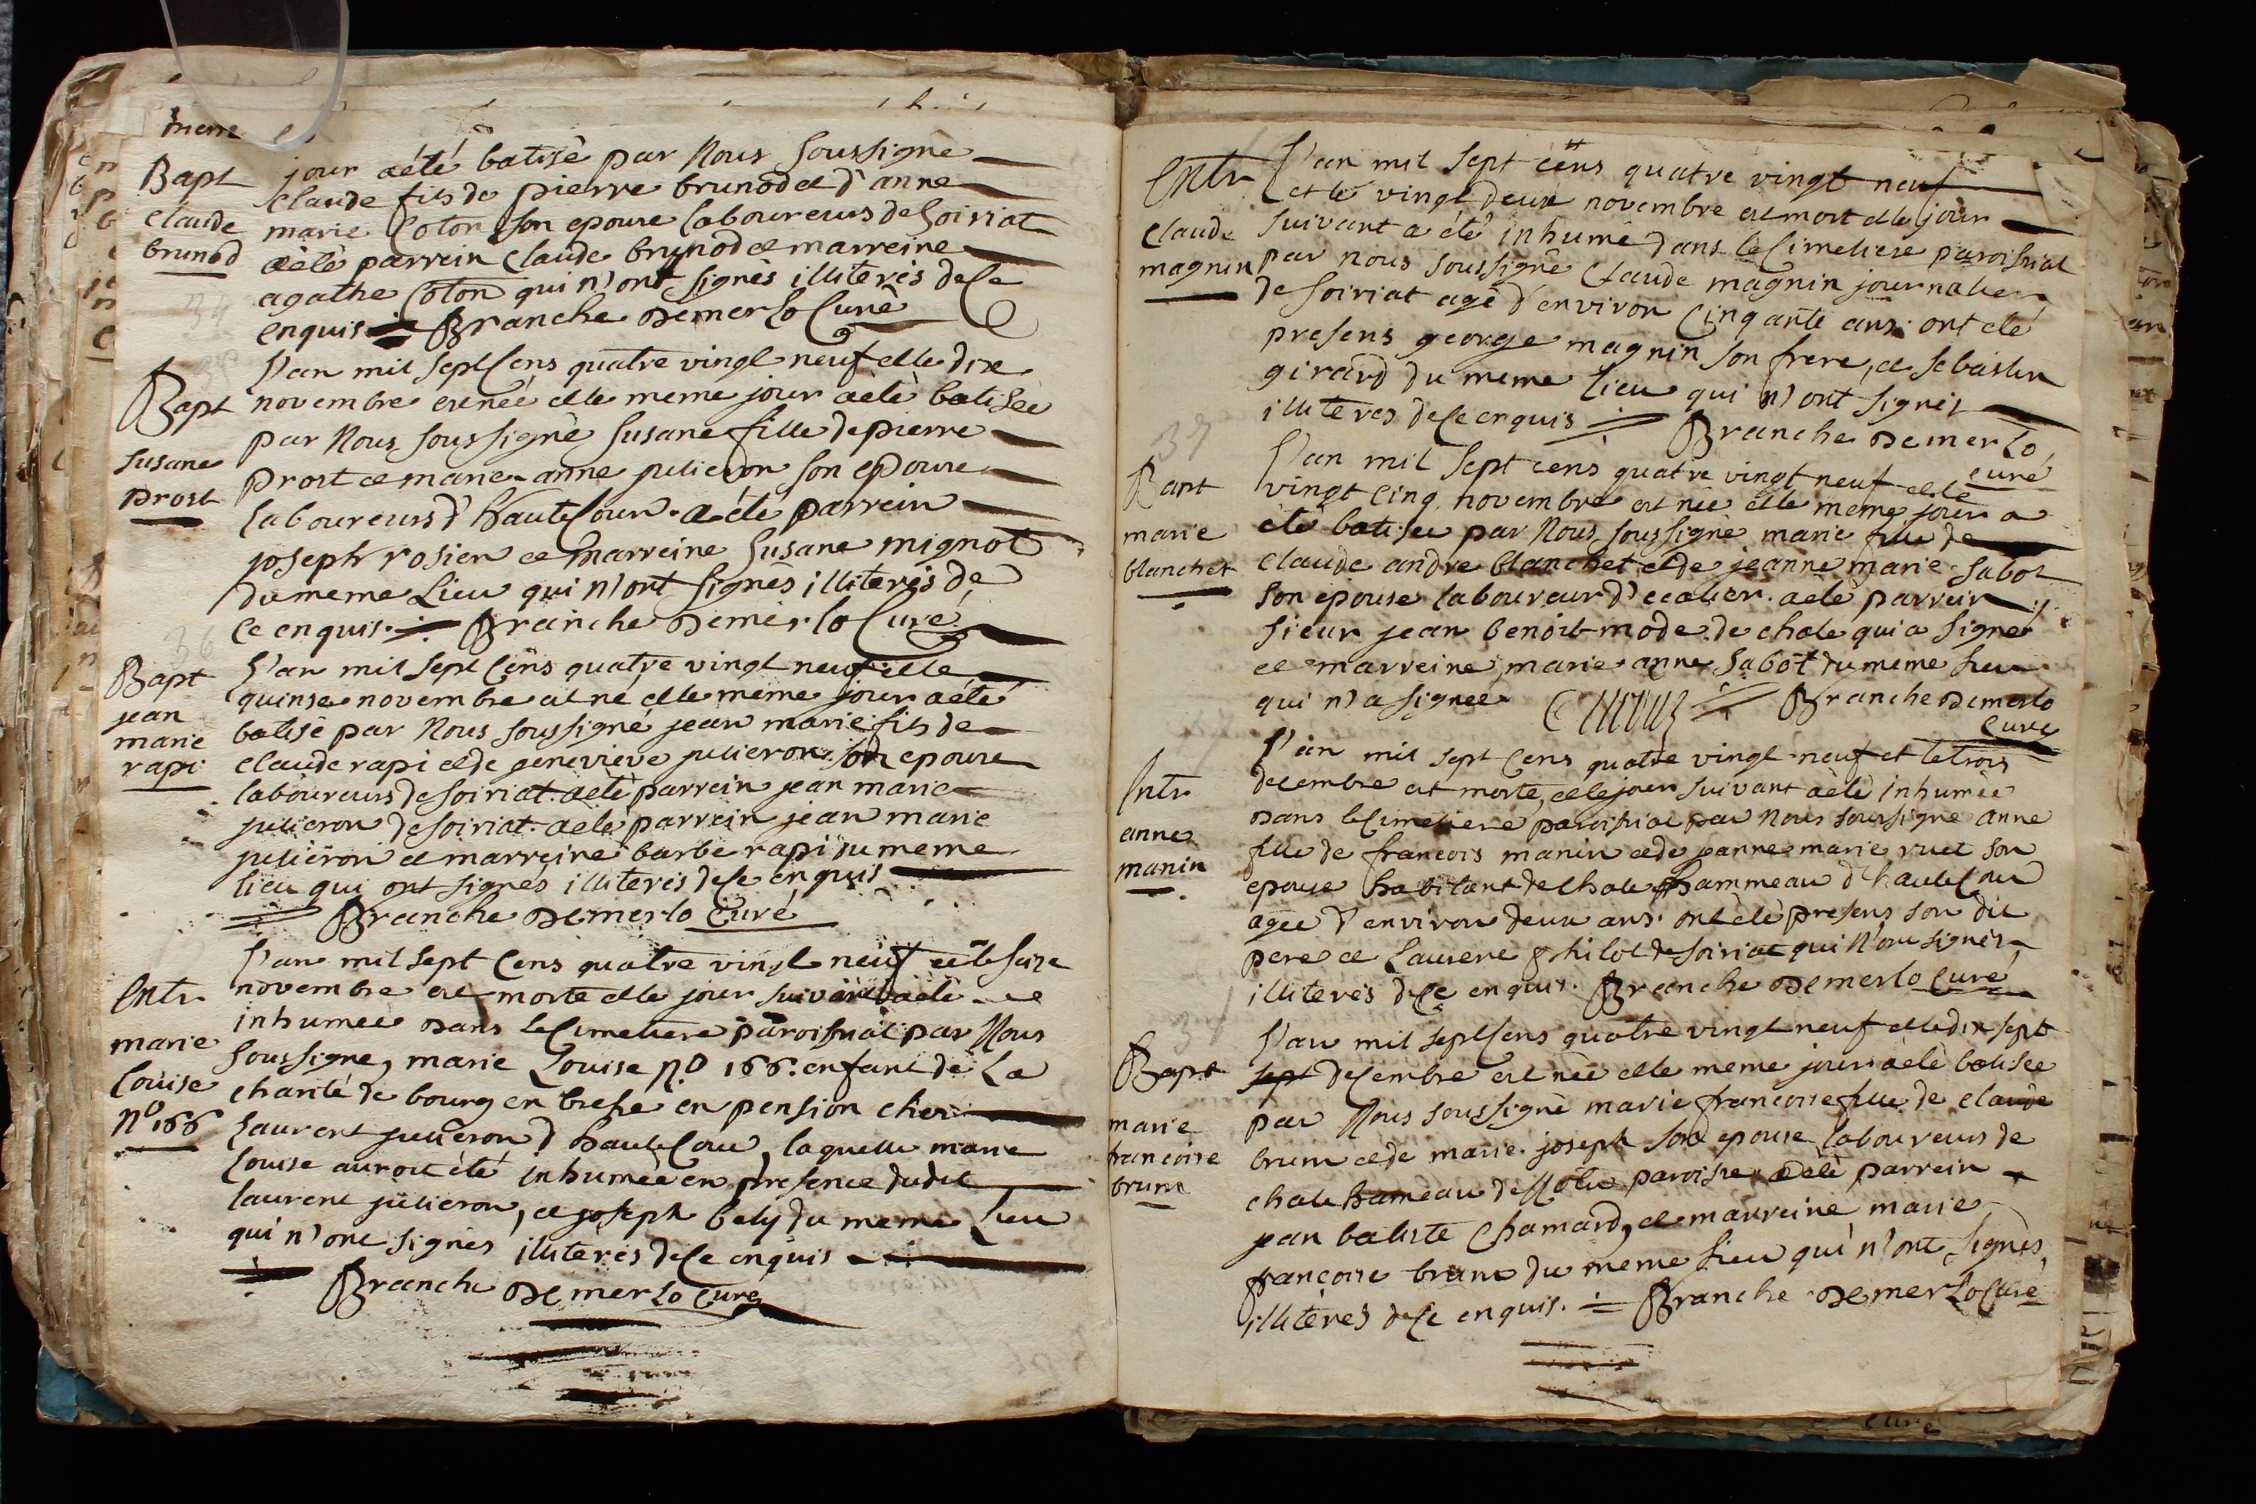 Bapt
claude
brunod
jour aété batisé par Nous soussigné
claude fils de pierre brunod et d'anne
marie Coton son epouse laboureurs de soiriat
aété parrein claude brunod et marreine
agathe Coton qui n'ont signés illiterés de Ce
enquis Branche Demerlo Curé
Bapt
susane
prost
L'an mil sept Cens quatre vingt neuf et le dix
novembre est née et le meme jour aété batisée
par Nous soussigné susane fille de pierre
prost et marie anne julieron son epouse
laboureurs d'hauteCour. aété parrein
joseph rosier et marreine susane mignot
du meme Lieu qui n'ont signés illiterés de
Ce enquis. Branche Demerlo Curé
Bapt
jean
marie
rapi
L'an mil sept Cens quatre vingt neuf et le
quinse novembre est né et le même jour aété
batisé par Nous soussigné jean marie fils de
claude rapi et de genevieve julieron son epouse
laboureurs de soiriat. aété parrein jean marie
julieron de soiriat. aété parrein jean marie
julieron et marreine barbe rapi du meme
lieu qui ont signés illiterés de Ce enquis
Branche Demerlo Curé
Entr
marie
Louise
N° 166
L'an mil sept Cens quatre vingt neuf et le seize
novembre est morte et le jour suivant aété
inhumée dans le Cimetiere paroissial par Nous
soussigné, marie Louise N.° 166. enfant de La
charité de bourg en bresse en pension chez
Laurent julieron d'hauteCour, laquelle marie
Louise auroit été inhumée en presence dudit
laurent julieron, et joseph bely du meme Lieu
qui n'ont signés illiterés de Ce enquis
Branche Demerlo Curé
Entr
claude
magnin
L'an mil sept cens quatre vingt neuf
et le vingt deux novembre est mort et le jour
suivant a été inhumé dans le Cimetiere paroissial
par nous soussigné Claude magnin journalier
de soiriat agé d'environ Cinquante ans. ont été
presens george magnin son frere, et sebastien
girard du meme Lieu qui n'ont signés
illiteres de Ce enquis Branche Demerlo
curé
37
Bapt
marie
blanchet
L'an mil sept cens quatre vingt neuf et le
vingt Cinq novembre est née et le meme jour a
été batisée par Nous soussigné marie fille de
Claude andre blanchet et de jeanne marie sabot
son epouse laboureur d' aété parrein
sieur jean benoit mode de chole qui a signé
et marreine marie anne sabot du meme lieu
qui n'a signée Branche Demerlo
Curé
Entr
anne
manin
L'an mil sept Cens quatre vingt neuf et le trois
decembre est morte, et le jour suivant aété inhumée
dans le Cimetiere paroissial par Nous soussigné anne
fille de francois manin et de jeanne marie ruet son
epouse habitant de Chole hammeau d'hauteCour
agée d'environ deux ans. ont été presens son dit
pere et Laurent philot de soiriat qui N'ont signés,
illiterés de Ce enquis. Branche Demerlo Curé
Bapt
marie
francoise
brune
L'an mil sept Cens quatre vingt neuf et le dix sept
sept decembre est née et le meme jour aété batisée
par Nous soussigné marie francoise fille de claude
brun et de marie joseph son epouse laboureurs de
chole hameau de Notre paroisse aété parrein
jean batiste Chamard, et marreine marie
francoise brune du meme lieu qui n'ont signés,
illitères de Ce enquis. Branche Demerlo Curé